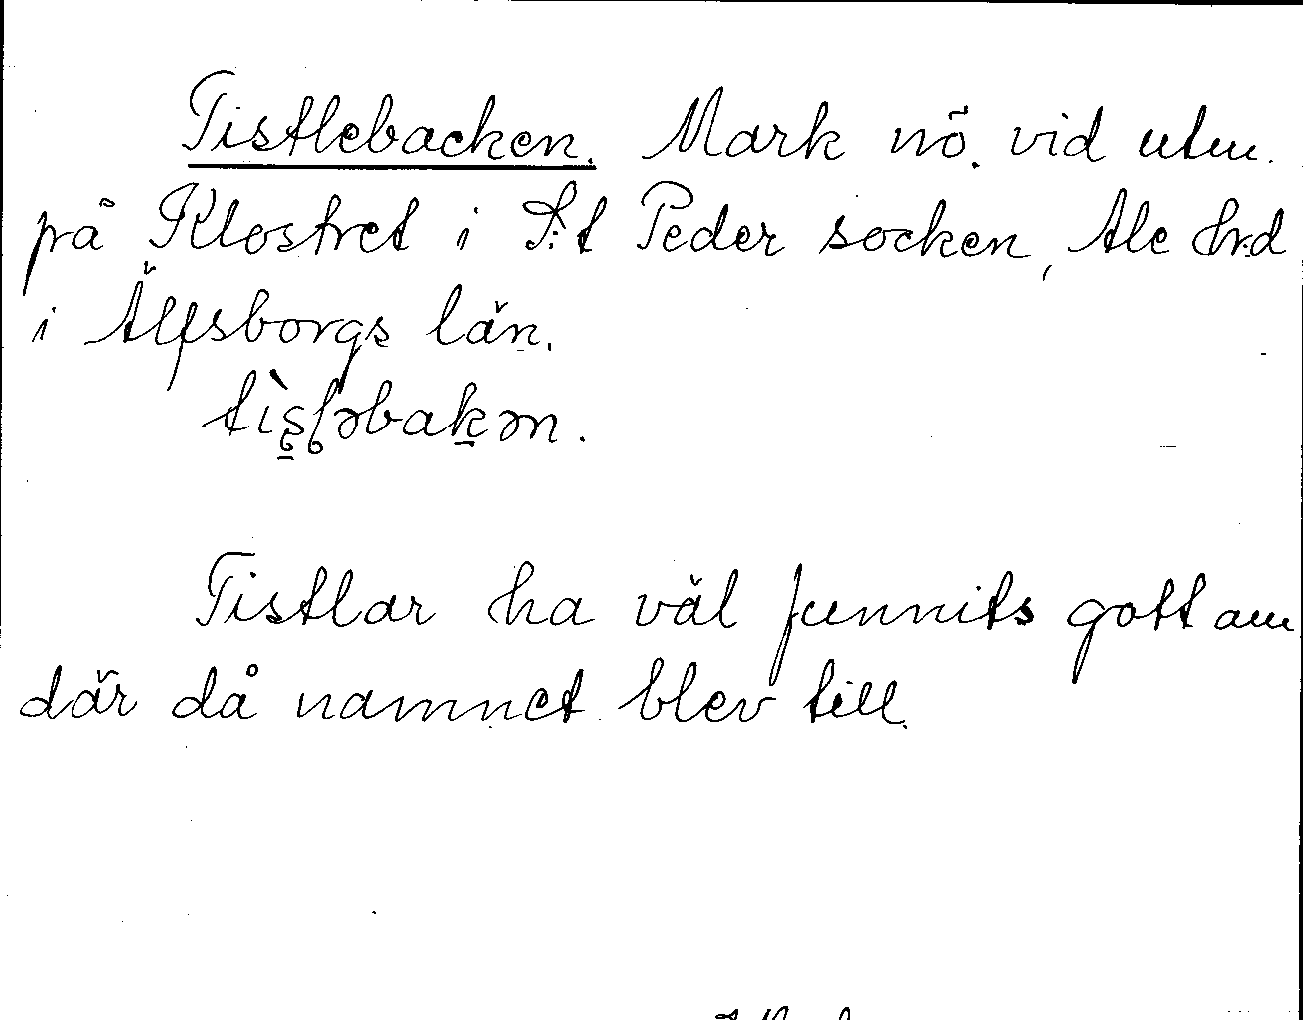 Tistlebacken. Mark nö. vid utm.
på Klostret i S:t Peder socken, Ale hrd
i Älfsborgs län.
tìs̠ḷəbak̠ən.
Tistlar ha väl funnits gott om
där då namnet blev till.